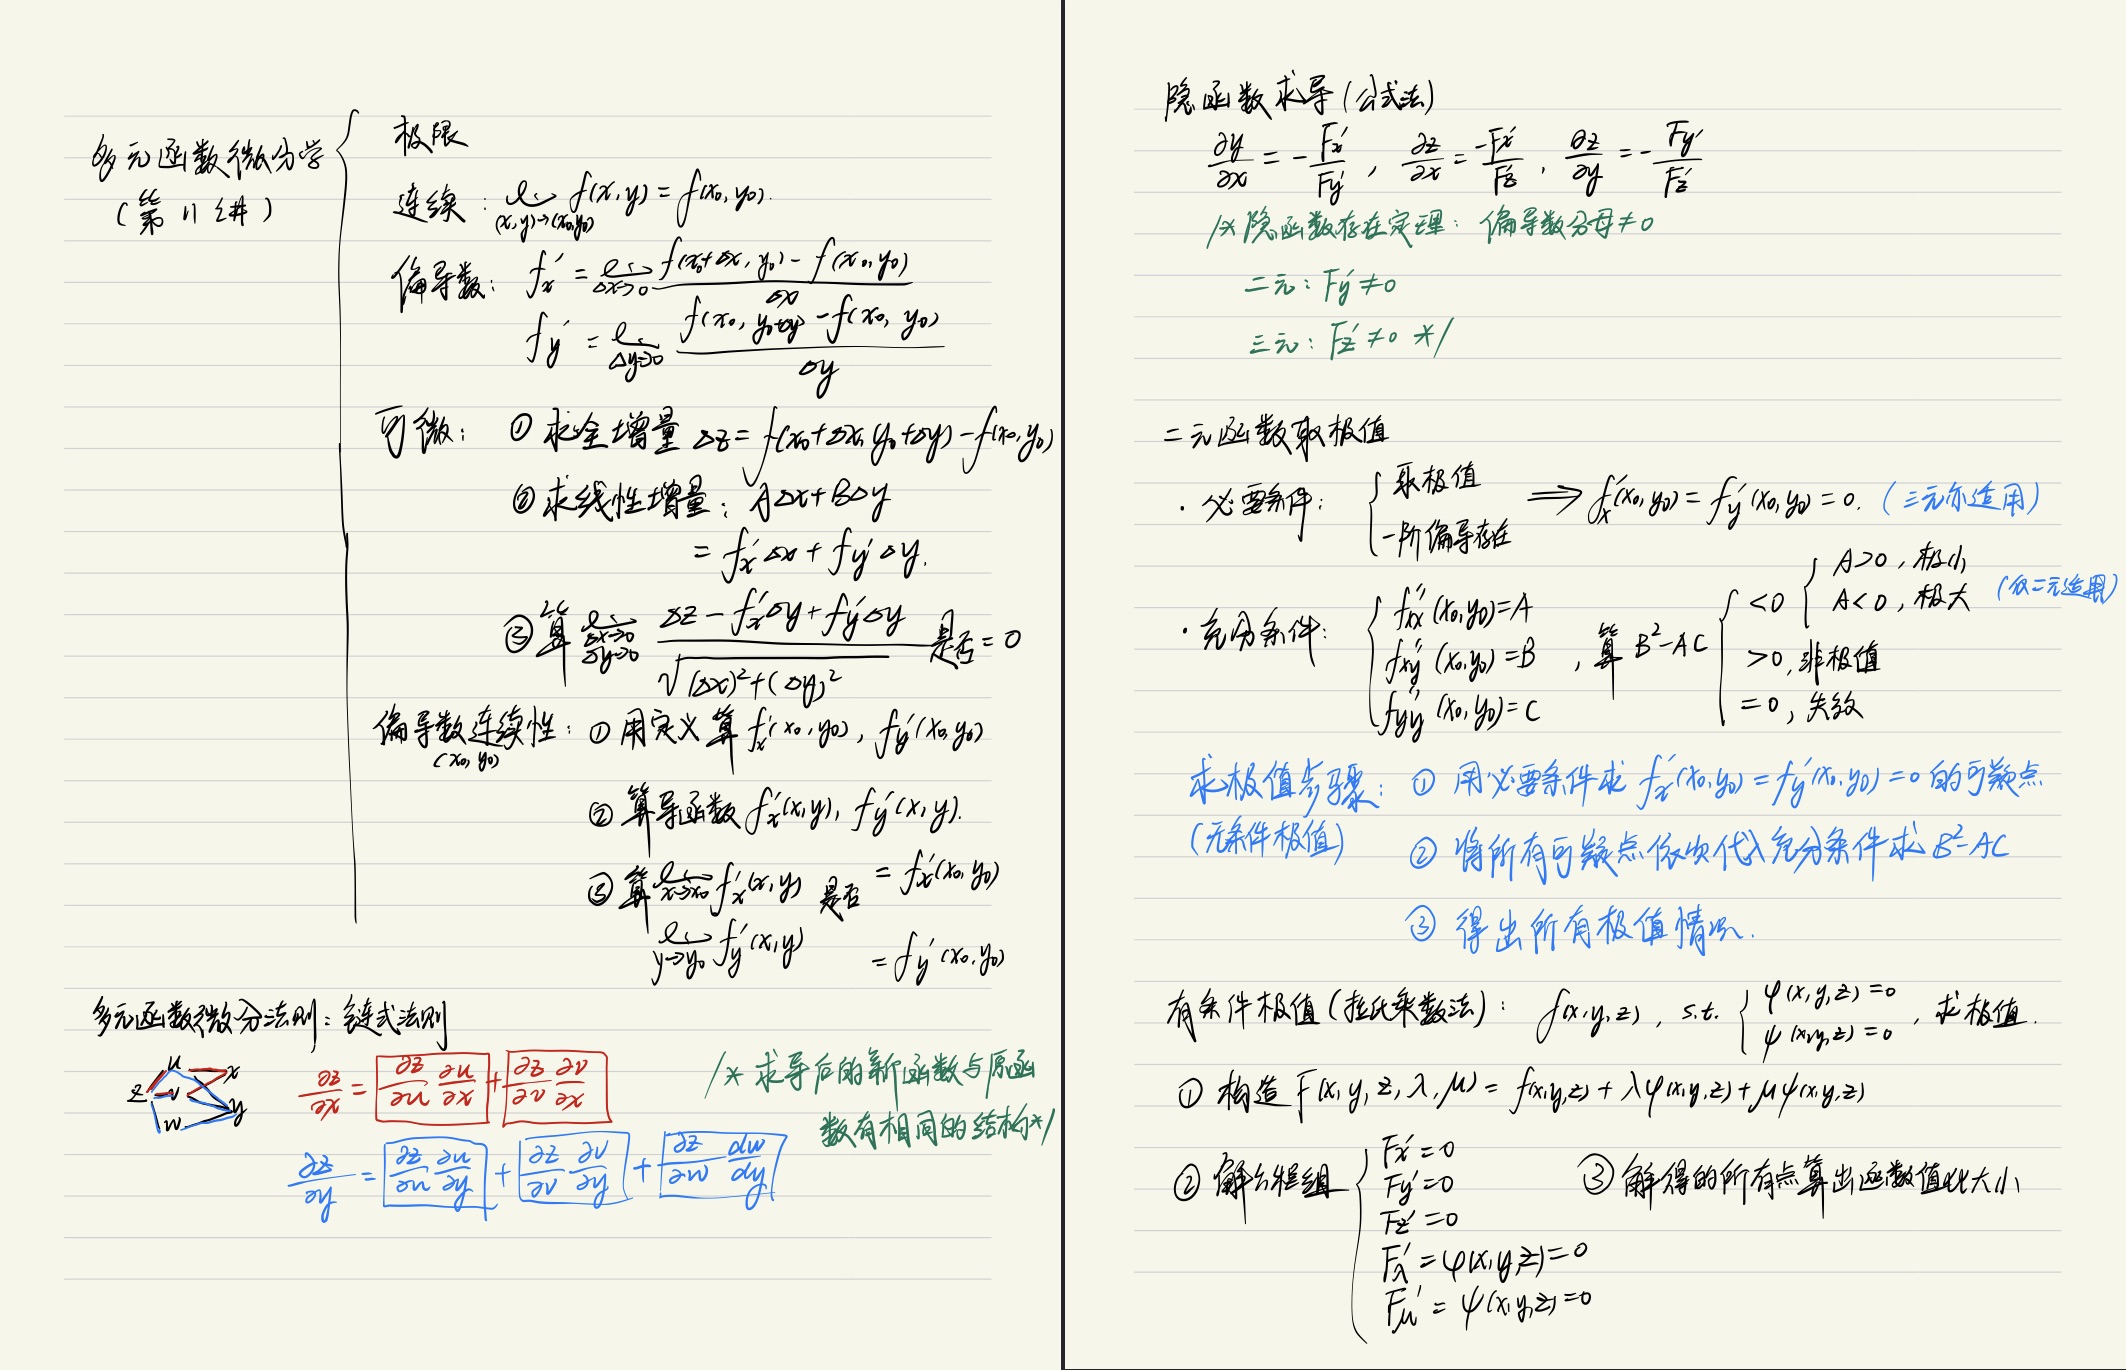 多元函数微分学
(第11讲)
极限
连续: lim (x,y)→(x₀,y₀) f(x,y) = f(x₀,y₀).
偏导数: fx′ = lim Δx→0 [f(x₀+Δx, y₀) - f(x₀,y₀)] / Δx
fy′ = lim Δy→0 [f(x₀, y₀+Δy) - f(x₀, y₀)] / Δy
可微: ① 求全增量 Δz = f(x₀+Δx, y₀+Δy) - f(x₀,y₀)
② 求线性增量: AΔx + BΔy
= fx′Δx + fy′Δy.
③ 算 lim Δx→0 Δy→0 [Δz - fx′Δy + fy′Δy] / √((Δx)²+(Δy)²) 是否=0
偏导数连续性: ① 用定义算 fx′(x₀,y₀), fy′(x₀,y₀)
(x₀,y₀)
② 算导函数 fx′(x,y), fy′(x,y).
③ 算 lim x→x₀ fx′(x,y) 是否 = fx′(x₀,y₀)
lim y→y₀ fy′(x,y) = fy′(x₀,y₀)
多元函数微分法则: 链式法则
z u v w x y
∂z/∂x = ∂z/∂u ∂u/∂x + ∂z/∂v ∂v/∂x
/* 求导后的新函数与原函
数有相同的结构*/
∂z/∂y = ∂z/∂u ∂u/∂y + ∂z/∂v ∂v/∂y + ∂z/∂w dw/dy
隐函数求导(公式法)
∂y/∂x = -Fx′/Fy′, ∂z/∂x = -Fx′/Fz′, ∂z/∂y = -Fy′/Fz′
/* 隐函数存在定理: 偏导数分母≠0
二元: Fy′≠0
三元: Fz′≠0 */
二元函数取极值
· 必要条件: { 取极值
一阶偏导存在 ⟹ fx′(x₀,y₀) = fy′(x₀,y₀) = 0. (三元亦适用)
· 充分条件: { fxx″(x₀,y₀)=A
fxy″(x₀,y₀)=B
fyy″(x₀,y₀)=C
, 算 B²-AC
<0 { A>0, 极小
A<0, 极大 (仅二元适用)
>0, 非极值
=0, 失效
求极值步骤: ① 用必要条件求 fx′(x₀,y₀) = fy′(x₀,y₀) = 0 的可疑点
(无条件极值) ② 将所有可疑点依次代入充分条件求 B²-AC
③ 得出所有极值情况.
有条件极值(拉氏乘数法): f(x,y,z), s.t. { φ(x,y,z)=0
ψ(x,y,z)=0 , 求极值.
① 构造 F(x,y,z,λ,μ) = f(x,y,z) + λφ(x,y,z) + μψ(x,y,z)
② 解方程组 { Fx′=0
Fy′=0
Fz′=0
Fλ′ = φ(x,y,z)=0
Fμ′ = ψ(x,y,z)=0
③ 解得的所有点算出函数值比大小